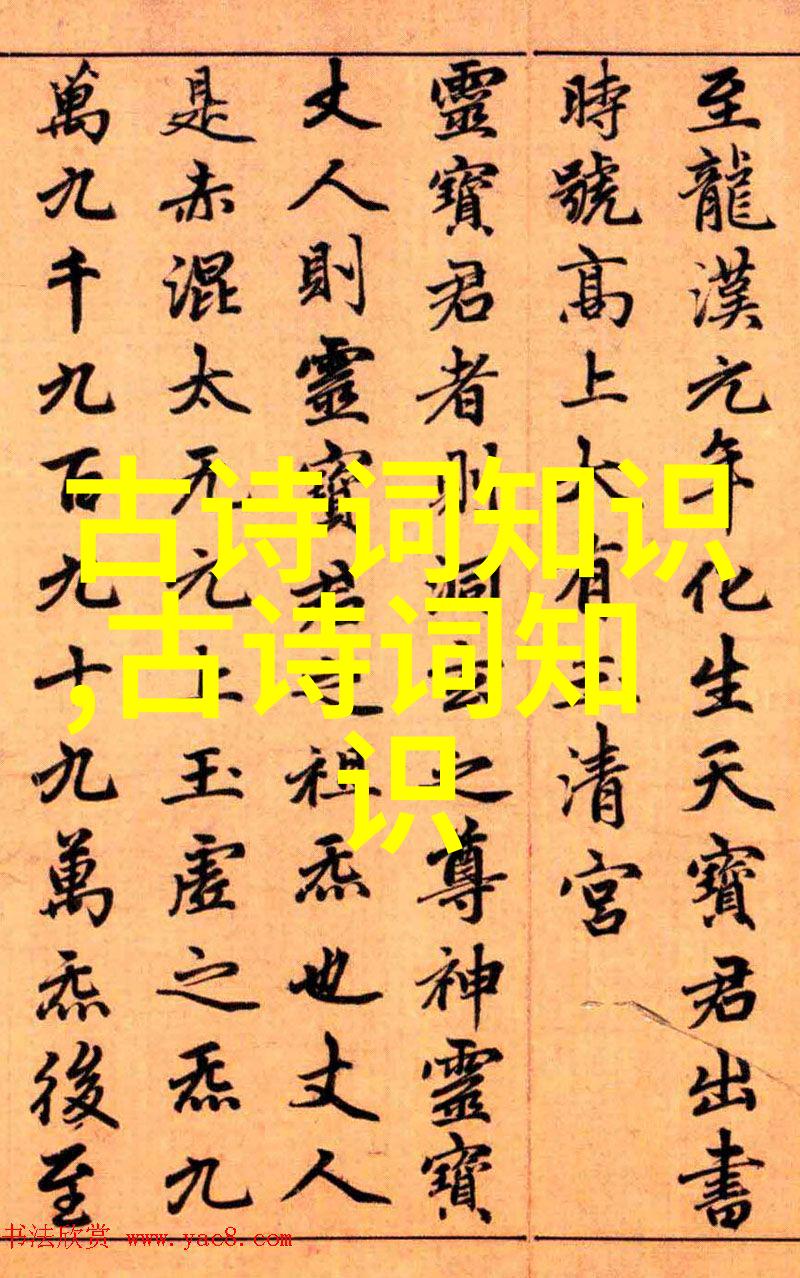 至龍漢元年化生天寶君出書
時號高上大有玉清宮
靈寶君者則洞玄之尊神靈寶
丈人則靈寶君之祖炁也丈人
是赤混太无元上玉虛之炁九
萬九千九百九十九萬炁後至
古诗词知识
,古诗词知
识
书法欣赏 www.yac8.com